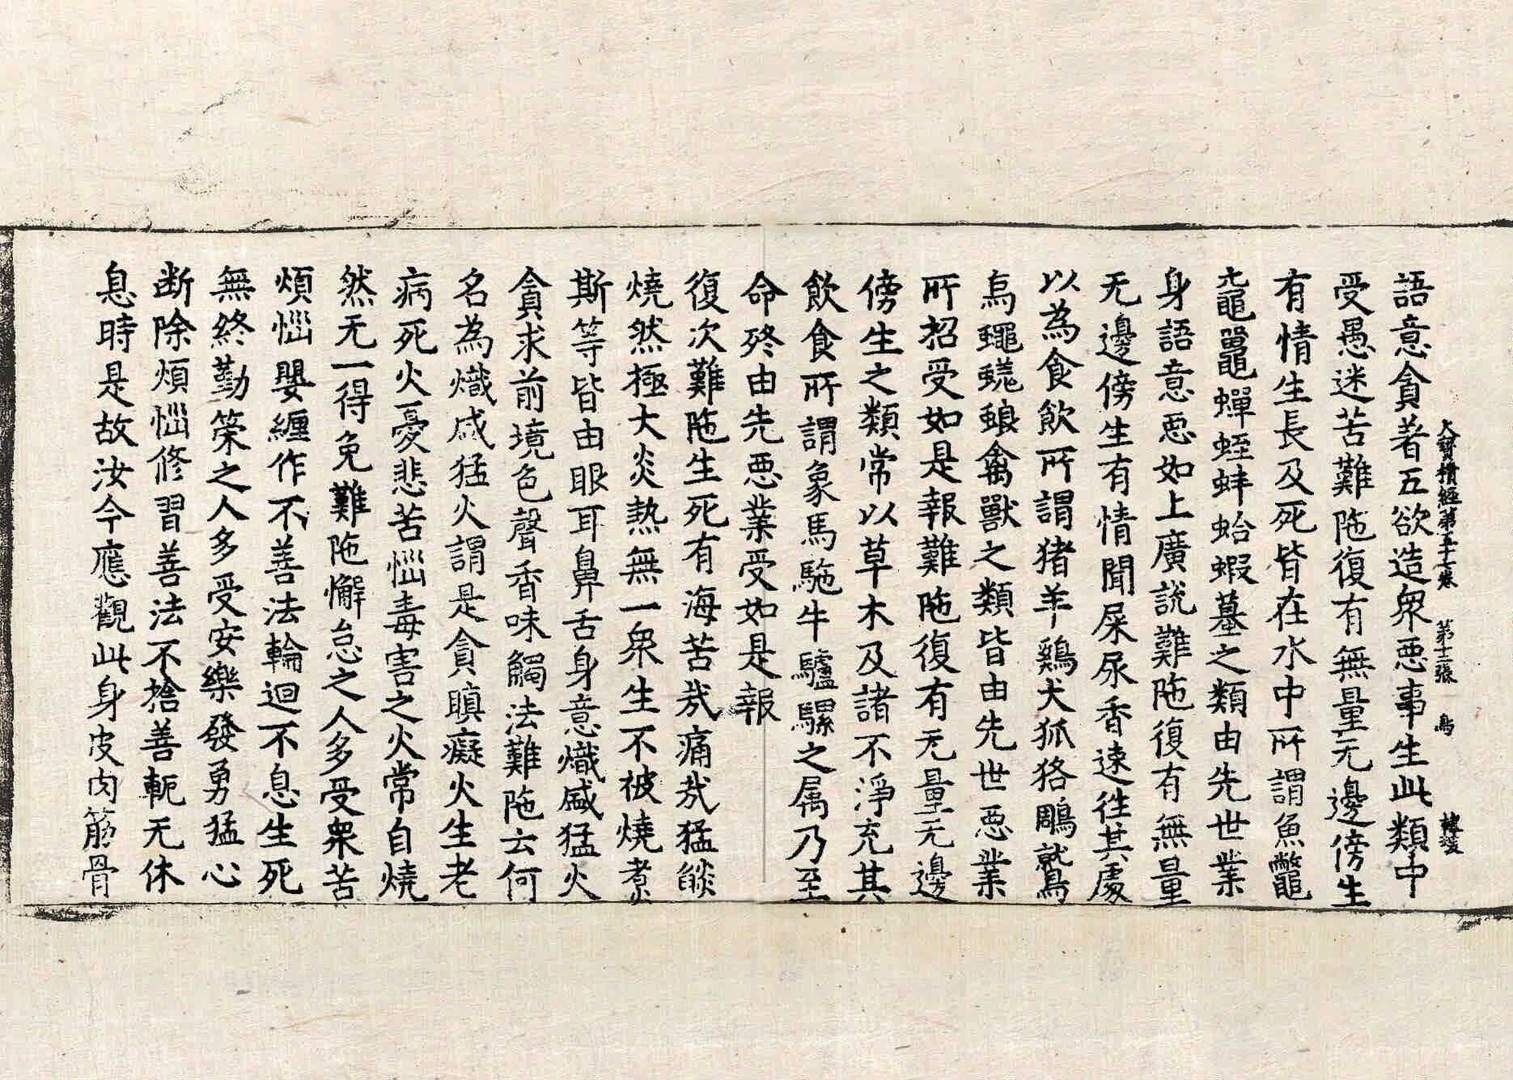 大寶積經第五十七卷 第十二張 鳥
語意貪著五欲造衆惡事生此類中
受愚迷苦難陁復有無量无邊傍生
有情生長及死皆在水中所謂魚鼈
黿鼉蟬蛭蚌蛤蝦蟇之類由先世業
身語意惡如上廣說難陁復有無量
无邊傍生有情聞屎尿香速往其處
以為食飲所謂猪羊鷄犬狐狢鵰鷲
烏蠅蜣蜋禽獸之類皆由先世惡業
所招受如是報難陁復有无量无邊
傍生之類常以草木及諸不淨充其
飲食所謂象馬駞牛驢騾之属乃至
命終由先惡業受如是報
復次難陁生死有海苦㢤痛㢤猛㷿
燒然極大炎熱無一衆生不被燒煮
斯等皆由眼耳鼻舌身意熾盛猛火
貪求前境色聲香味觸法難陁云何
名為熾盛猛火謂是貪瞋癡火生老
病死火憂悲苦惱毒害之火常自燒
然无一得免難陁懈怠之人多受衆苦
煩惱嬰纏作不善法輪迴不息生死
無終勤策之人多受安樂發勇猛心
断除煩惱修習善法不捨善軛无休
息時是故汝今應觀此身皮肉筋骨